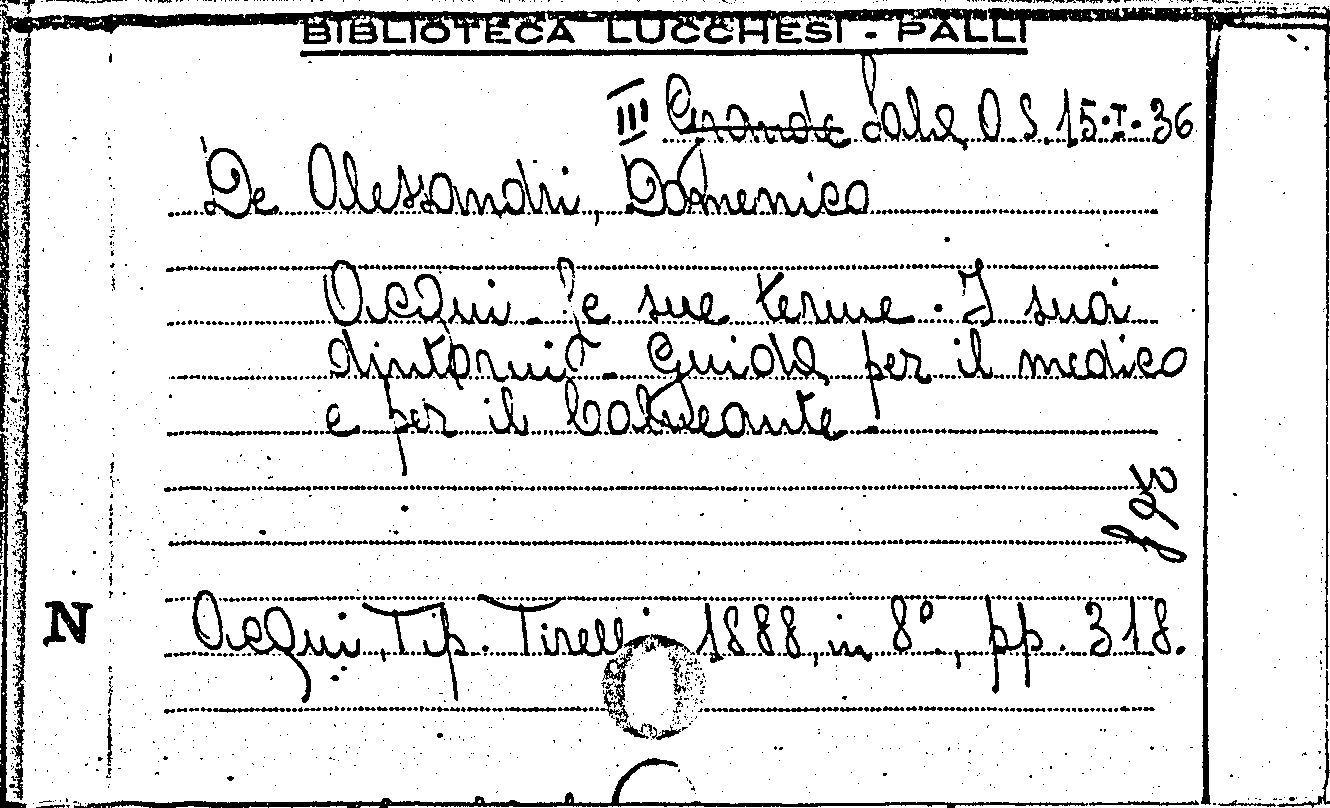 BIBLIOTECA LUCCHESI - PALLI
III Grande Sala, O S. 15·I·36
De Alessandri, Domenico
Acqui - Le sue terme. I suoi
dintorni - Guida per il medico
e per il balneante.
N
Acqui, Tip. Tirelli 1888, in 8°., pp. 318.